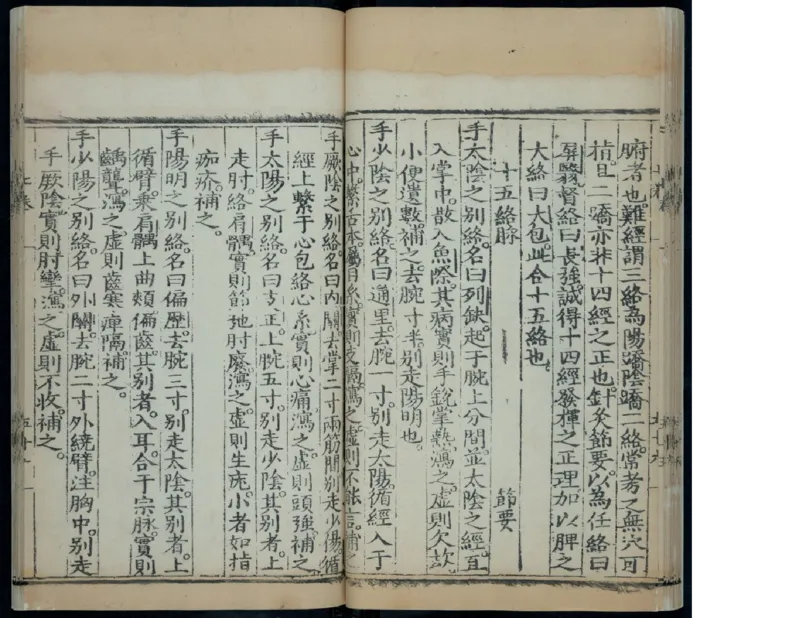 腑者也難經謂三絡為陽蹻陰蹻二絡常考之無穴可
指且二蹻亦非十四經之正也針灸節要以為任絡曰
屏翳督絡曰長強誠得十四經發揮之正理加以脾之
大絡曰大包此合十五絡也
十五絡脉 節要
手太陰之別絡名曰列缺起于腕上分間並太陰之經直
入掌中散入魚際其病實則手銳掌熱瀉之虛則欠㰦
小便遺數補之去腕寸半別走陽明也
手少陰之別絡名曰通里去腕一寸別走太陽循經入于
心中繫舌本屬目系實則支膈瀉之虛則不能言補之
手厥陰之別絡名曰內關去掌二寸兩筋間別走少陽循
經上繫于心包絡心系實則心痛瀉之虛則頭強補之
手太陽之別絡名曰支正上腕五寸別走少陰其別者上
走肘絡肩髃實則節弛肘廢瀉之虛則生疣小者如指
痂疥補之
手陽明之別絡名曰偏歷去腕三寸別走太陰其別者上
循臂乘肩髃上曲頰偏齒其別者入耳合于宗脉實則
齲聾瀉之虛則齒寒痺隔補之
手少陽之別絡名曰外關去腕二寸外繞臂注胸中別走
手厥陰實則肘攣瀉之虛則不收補之